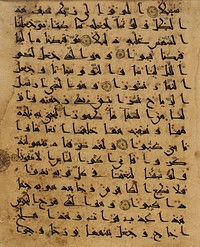 سبيلا الم تر الى ربك كيف مد
الظل ولو شا لجعله ساكنا ثم جعلنا
الشمس عليه دليلا ثم قبضنه الينا
قبضا يسيرا وهو الذي جعل لكم
اليل لباسا والنوم سباتا وجعل
النهار نشورا وهو الذي ارسل
الريح بشرا بين يدي رحمته وا
نزلنا من السما ما طهورا لنحيي به بلدة
ميتا ونسقيه مما خلقنا انعاما وانا
سي كثيرا ولقد صرفنه بينهم ليذ
كروا فابى اكثر الناس الا كفورا
ولو شئنا لبعثنا في كل قرية نذيرا
فلا تطع الكفرين وجهدهم به جها
دا كبيرا وهو الذي مرج البحر
ين هذا عذب فرات وهذا ملح
اجاج وجعل بينهما برزخا و